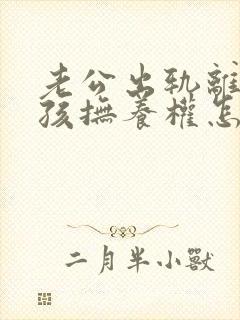 老公出轨離
孩撫養權怎
二月半小獸